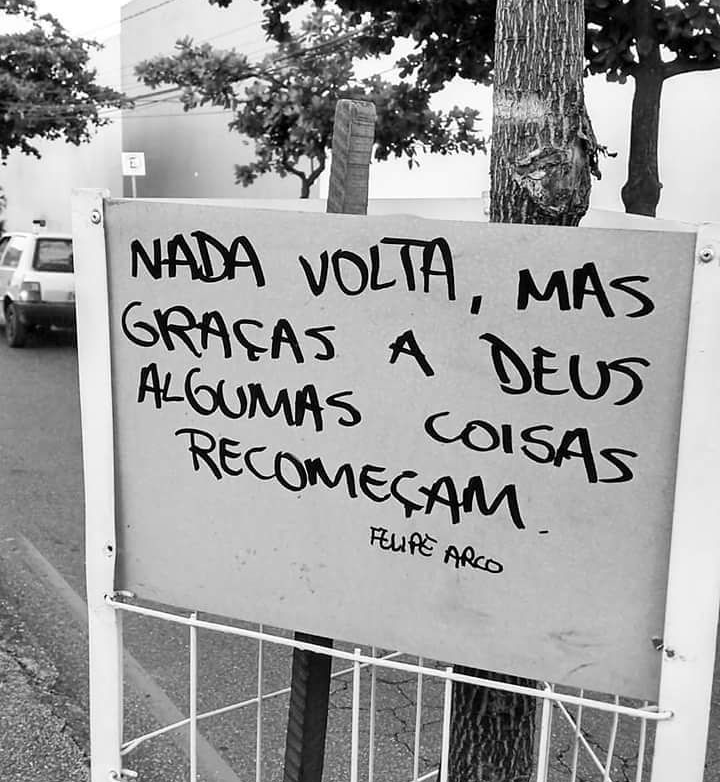 NADA VOLTA, MAS
GRAÇAS A DEUS
ALGUMAS COISAS
RECOMEÇAM.
FELIPE ARCO
E